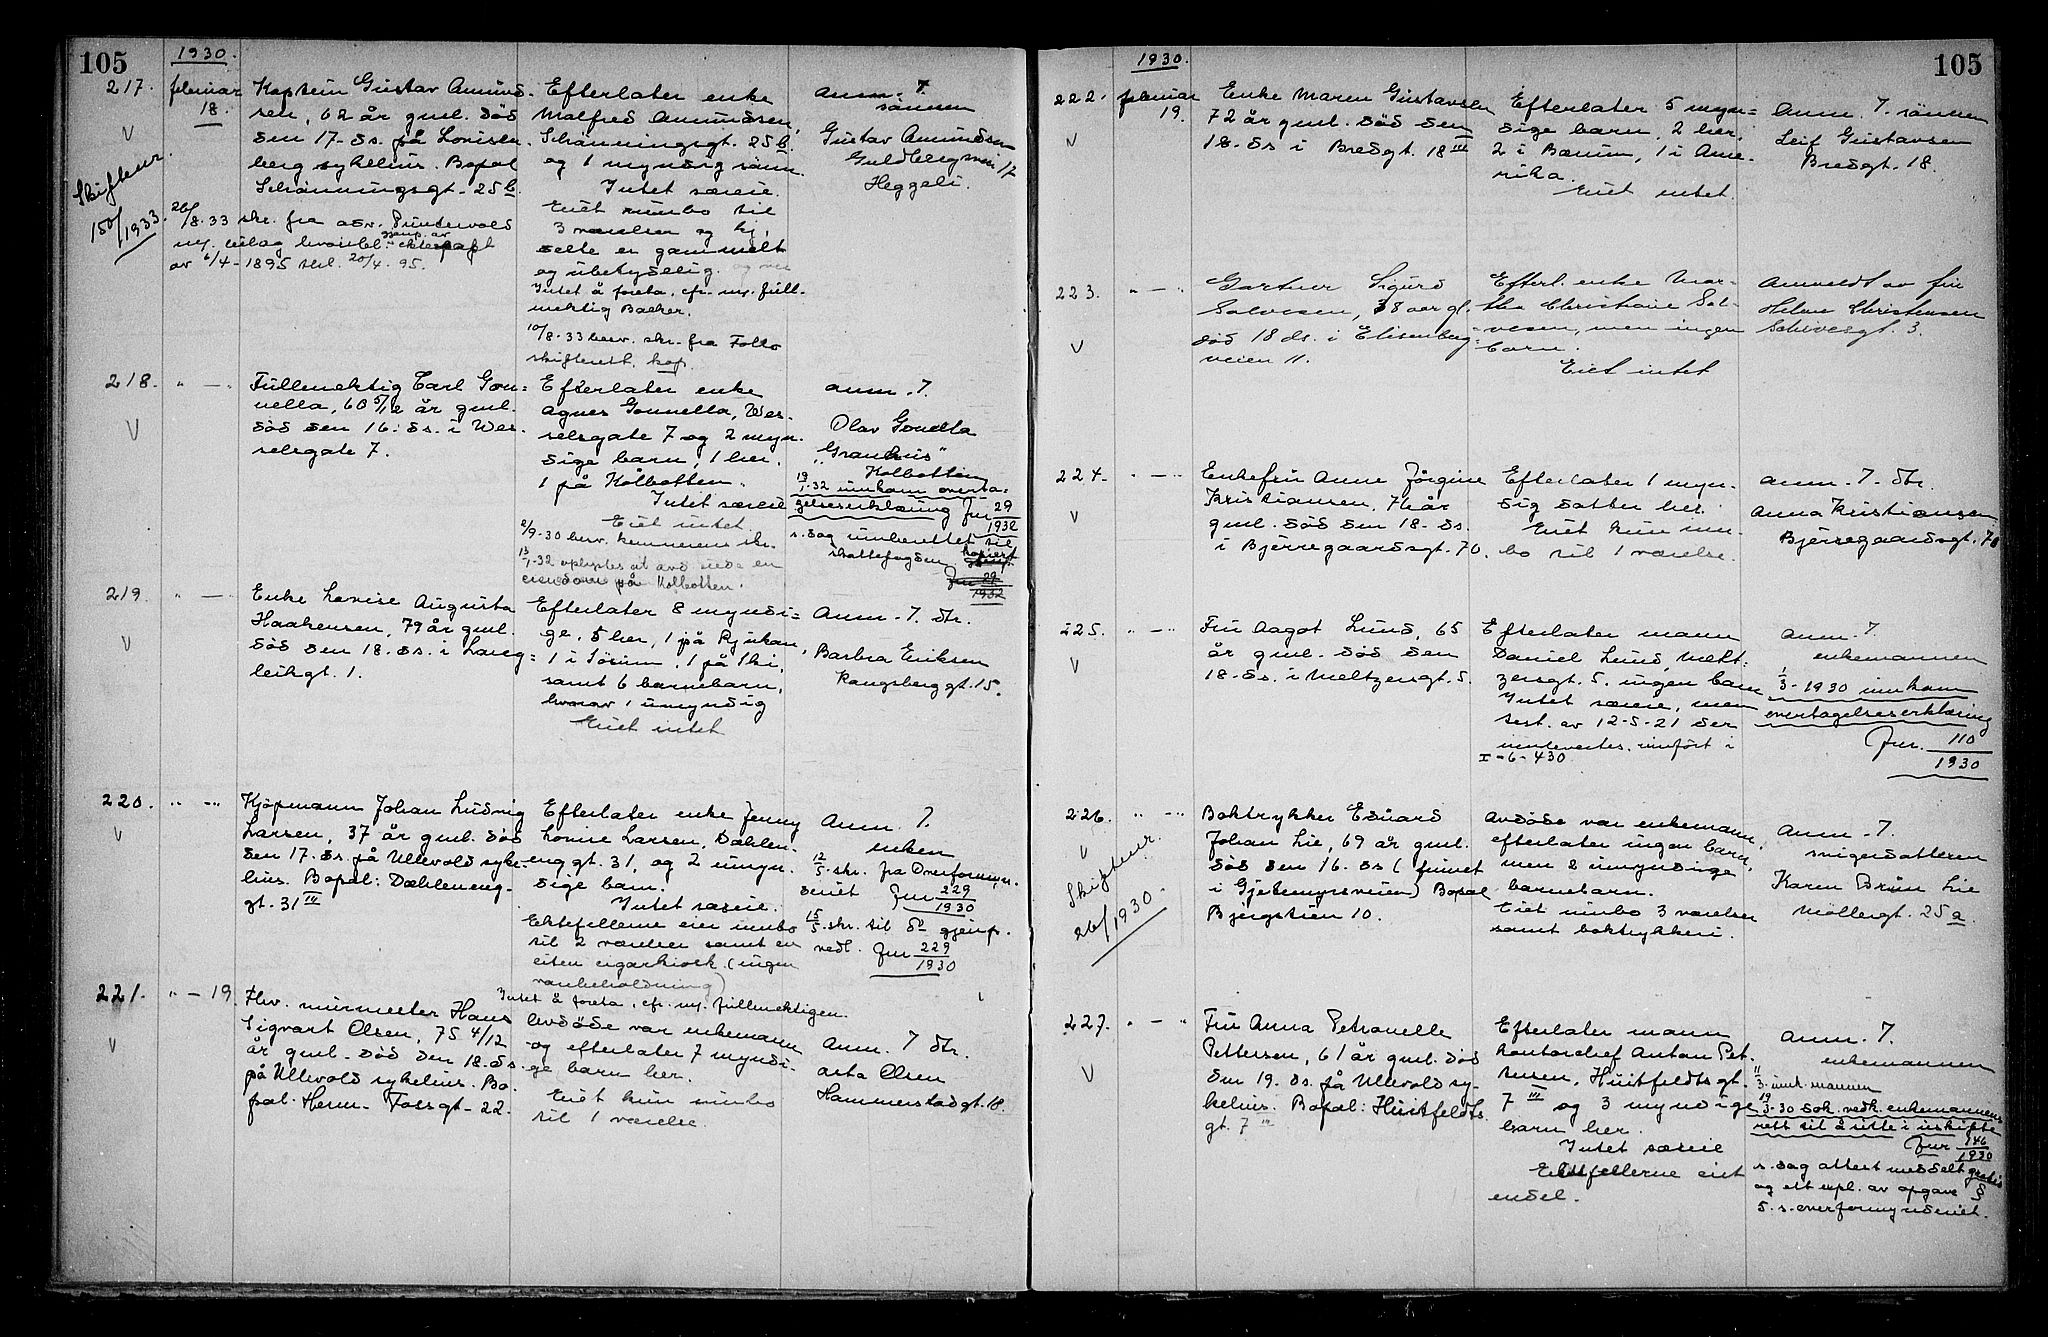 105
1930.
217.
februar
18.
Kaptein Gustav Amund-
sen, 62 år gml. død
den 17. ds. på Lovisen-
berg sykehus. Bopæl
Schønningsgt. 25 b.
26/8.33 skr. fra adv. Sundervold
av 6/4-1895 tinl. 20/4.95.
Skifteur.
150/1933.
Efterlater enke
Malfred Amundsen,
Schønningsgt. 25 b.
og 1 myndig sønn.
Intet særeie.
Eiet innbo til
3 værelser og kj.
dette er gammelt
og ubetydelig.
Intet å foreta, cfr. ny. full-
mektig Backer.
10/8.33 berv. skr. fra Follo
skifterett, kop.
Anm. 7.
sønnen
Gustav Amundsen
Guldbergsvei 17
Heggeli.
218.
" — "
Fullmektig Carl Gon-
nella, 60 5/12 år gml.
død den 16. ds. i Wes-
selsgate 7.
Efterlater enke
Agnes Gonnella, Wes-
selsgate 7 og 2 myn-
dige barn, 1 her,
1 på Kolbotten.
Intet særeie
Eiet intet.
2/9-30 berv. kemnerens skr.
13/1-32 oplystes at avd. eiede en
eiendom på Kolbotten.
Anm. 7.
Olav Gonella
"Granhus"
Kolbotten
19/1-32 innkom overta-
gelseserklæring Jnr 29/1932
s. dag innberettet til
skattefogden kopiert
Jnr 29/1932
219.
" — "
Enke Lovise Augusta
Haakensen, 79 år gml.
død den 18. ds. i Lang-
leikgt. 1.
Efterlater 8 myndi-
ge, 5 her, 1 på Rjukan,
1 i Sørum, 1 på Ski,
samt 6 barnebarn,
hvorav 1 umyndig
Eiet intet
Anm. 7. dtr.
Barbra Eriksen
Kongsberggt. 15.
220.
" — "
Kjøpmann Johan Ludvig
Larsen, 37 år gml. død
den 17. ds. på Ullevold syke-
hus. Bopæl: Dæhleneng-
gt. 31 III
Efterlater enke Jenny
Lovise Larsen, Dæhlen-
enggt. 31, og 2 umyn-
dige barn.
Intet særeie.
Ektefellene eier innbo
til 2 værelser samt en
liten cigarkiosk. (ingen
varebeholdning)
Intet å foreta, cfr. ny. fullmektigen.
Anm. 7.
enken
12/5. skr. fra Overformyn-
deriet Jnr 229/1930
15/5. skr. til do gjenp.
vedl. Jnr 229/1930
221.
" — 19.
Fhv. murmester Hans
Sigvart Olsen, 75 4/12
år gml. død den 18. ds.
på Ullevold sykehus. Bo-
pæl: Herm. Fossgt. 22.
Avdøde var enkemann
og efterlater 7 myndi-
ge barn her.
Eiet kun innbo
til 1 værelse.
Anm. 7 dtr.
Asta Olsen
Hammerstadgt. 18.
105
1930.
222.
februar
19.
Enke Maren Gustavsen
72 år gml. død den
18. ds i Bredgt. 18 III
Efterlater 5 myn-
dige barn, 2 her,
2 i Bærum, 1 i Ame-
rika.
Eiet intet.
Anm. 7. sønnen
Leif Gustavsen
Bredgt. 18.
223.
" — "
Gartner Sigurd
Salvesen, 38 aar gl.
død 18 ds. i Elisenberg-
veien 11.
Efterl. enke Mar-
tha Christiane Sal-
vesen, men ingen
barn.
Eiet intet
Anmeldt av fru
Helene Christensen
Schivesgt. 3.
224.
" — "
Enkefru Anne Jørgine
Kristiansen, 71 år
gml. død den 18. ds.
i Bjerregaardsgt. 70.
Efterlater 1 myn-
dig datter her.
Eiet kun inn-
bo til 1 værelse.
Anm. 7. dtr.
Anna Kristiansen
Bjerregaardsgt. 70
225.
" — "
Fru Aagot Lund, 65
år gml. død den
18. ds. i Meltzersgt. 5.
Efterlater mann
Daniel Lund, Melt-
zersgt. 5. ingen barn
Intet særeie, men
test. av 12-5-21 der
innleverte s. innført i
I-6-430
Anm. 7.
enkemannen
1/3-1930 innkom
overtagelseserklæring
Jnr. 110/1930
226.
" — "
Skifteur.
26/1930.
Boktrykker Edvard
Johan Lie, 69 år gml.
død den 16. ds (funnet
i Gjetemyrsveien) Bopæl
Bjergstien 10.
Avdøde var enkemann,
efterlater ingen barn,
men 2 umyndige
barnebarn.
Eiet innbo 3 værelser
samt boktrykkeri.
Anm. 7.
svigerdatteren
Karen Brun Lie
Møllergt. 25 a
227.
" — "
Fru Anna Petronelle
Pettersen, 61 år gml. død
den 19. ds. på Ullevold sy-
kehus. Bopæl: Huitfeldts
gt. 7 III
Efterlater mann
kontorchef Anton Pet-
tersen, Huitfeldtsgt.
7 III og 3 myndige
barn her.
Intet særeie
Ektefellerne eiet
endel.
Anm. 7.
enkemannen
11/3. innk. mannen
19/3-30 sok. vedk. enkemannens
rett til å sitte i uskifte
Jnr 146/1930
s. dag attest meddelt gratis
og ett expl. av opgave §
5. s. overformynderiet.